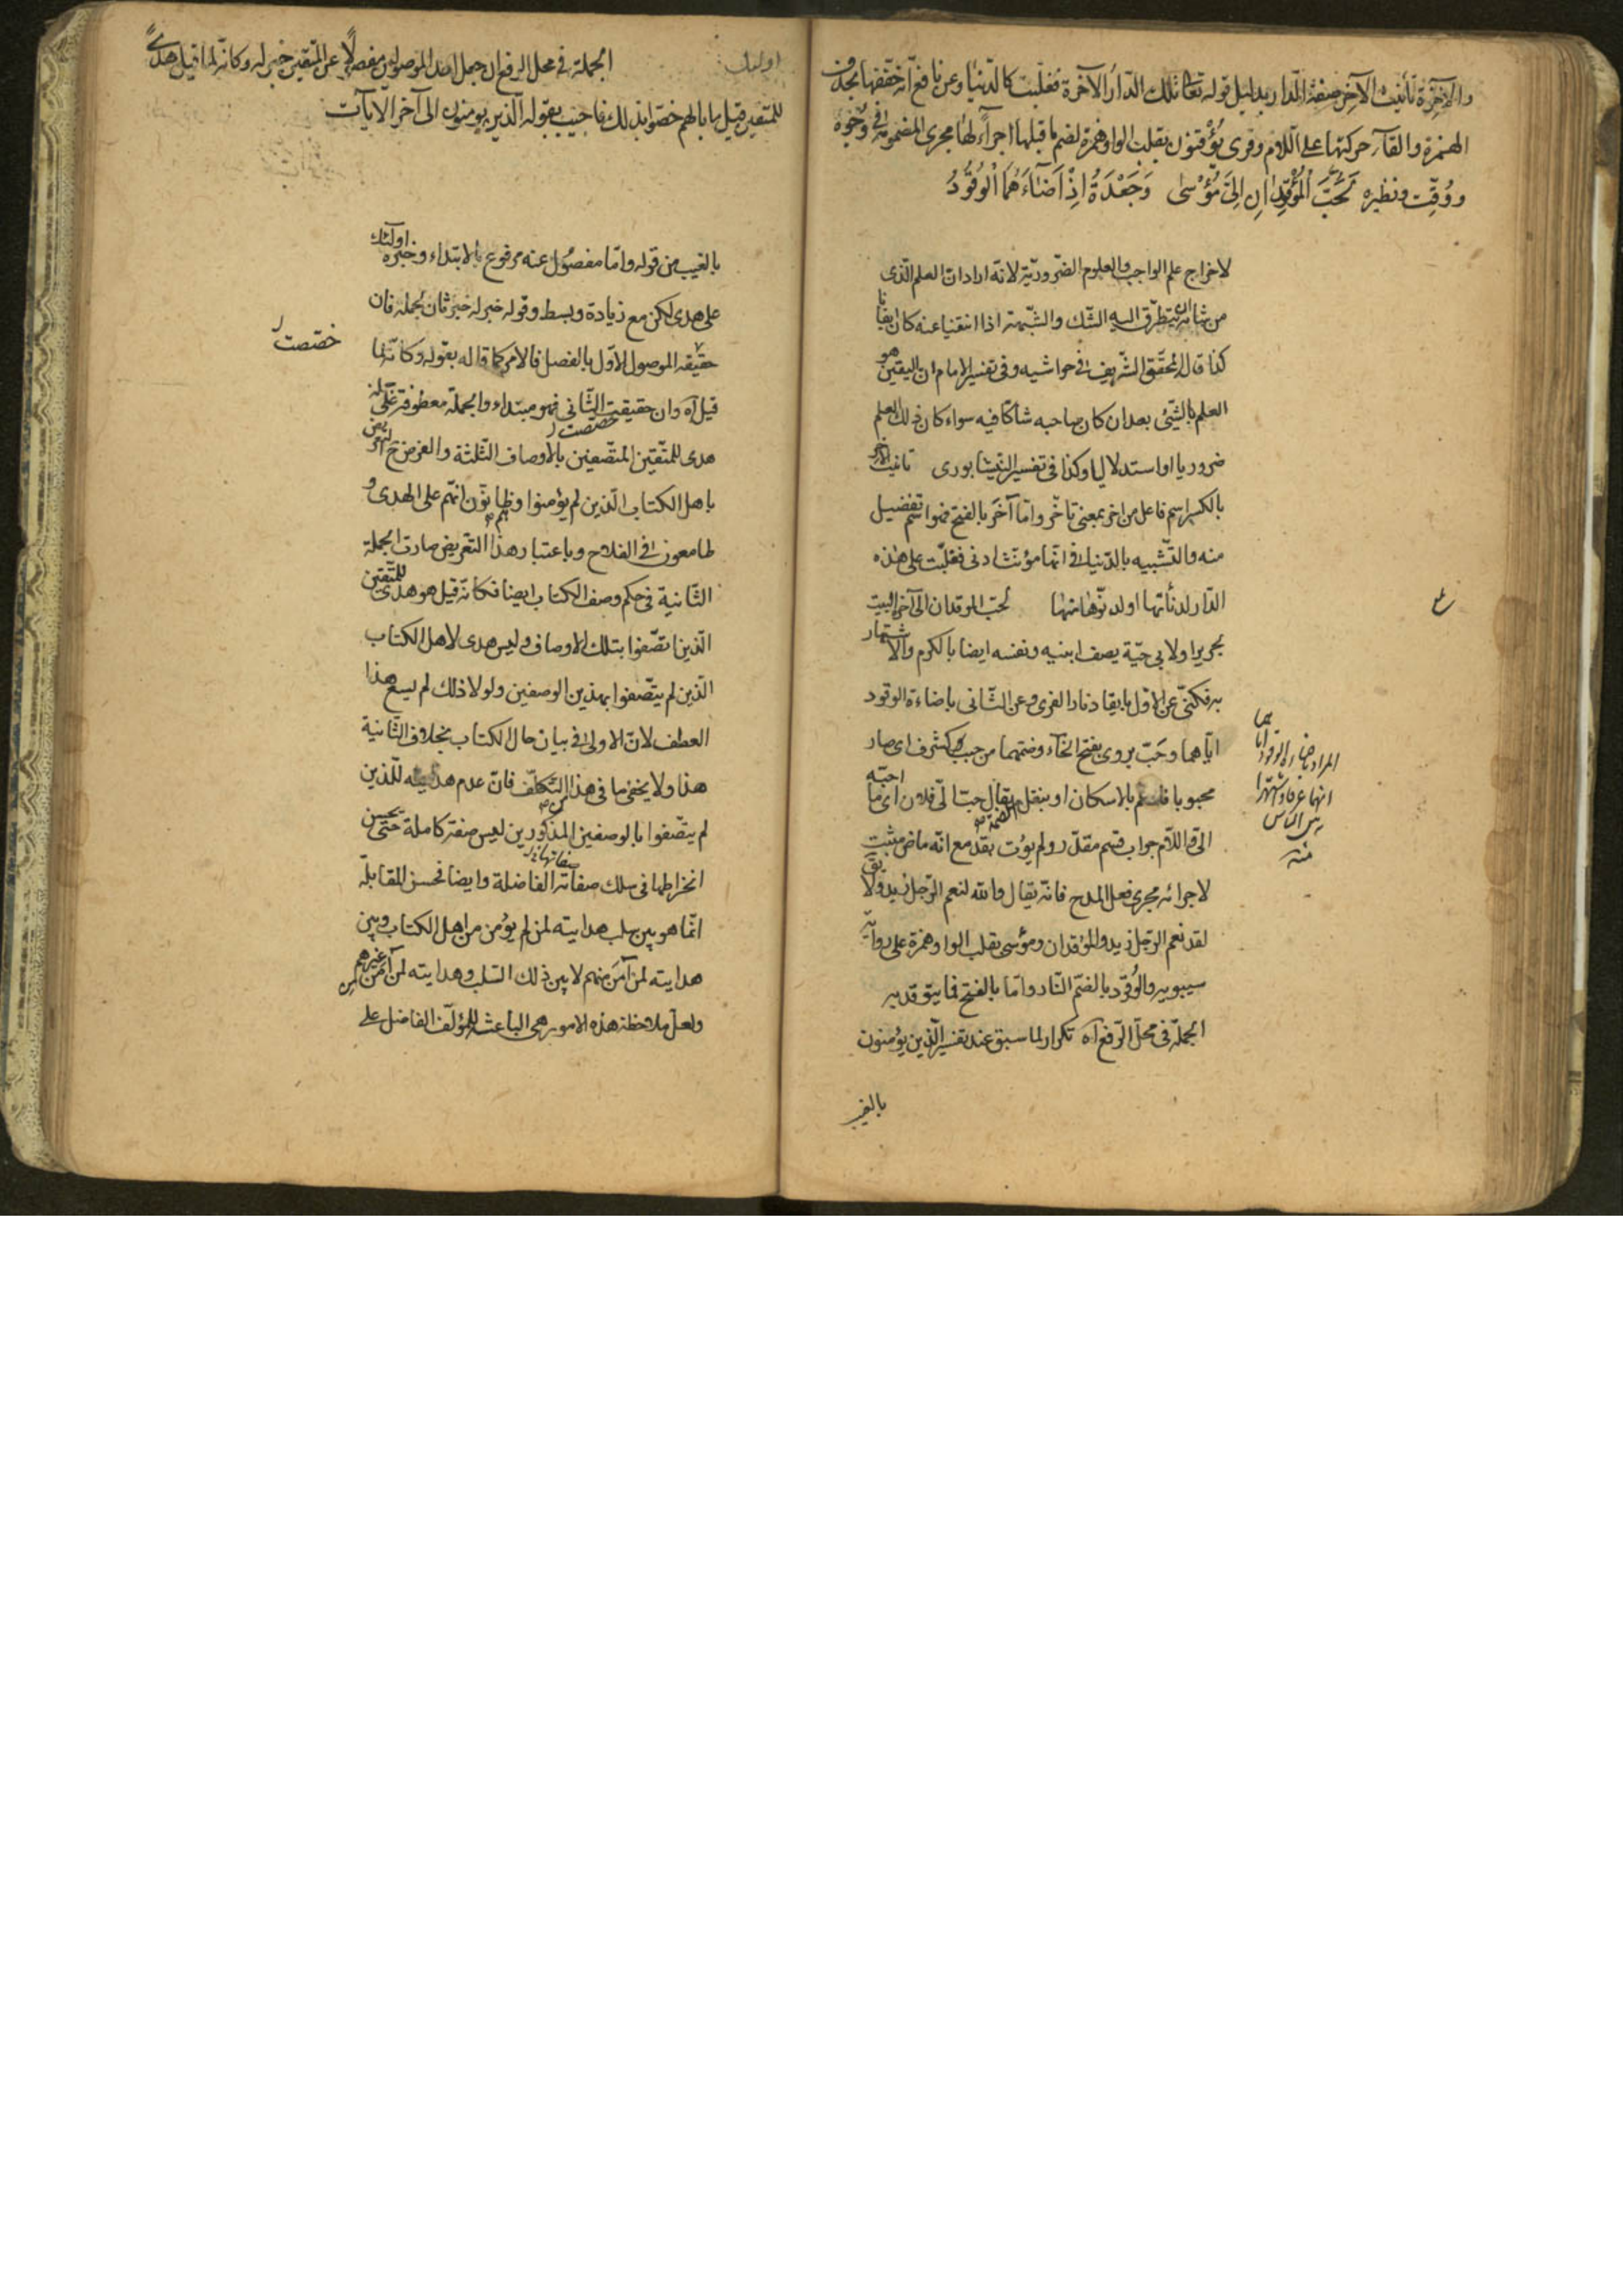 والآخرة تأنيث الآخر صفة الدار بدليل قوله تعالى تلك الدار الآخرة فغلبت كالدنيا وعن نافع انه خففها بحذف
الهمزة والقاء حركتها على اللام وقرئ يؤقنون بقلب الواو همزة لضم ما قبلها اجراء لها مجرى المضمومة في وجوه
ووقتت ونظيره لحب المؤقدان الى مؤسى وجعدة اذ اضاءهما الوقود
لاخراج علم الواجب والعلوم الضرورية لانه اراد ان العلم الذى
من شانه ان يتطرق اليه الشك والشبهة اذا انتفيا عنه كان ايقانا
كذا قال المحقق الشريف في حواشيه وفى تفسير الامام ان اليقين هو
العلم بالشئ بعد ان كان صاحبه شاكا فيه سواء كان ذلك العلم
ضروريا او استدلاليا وكذا فى تفسير النيشابورى تانيث الآخر
بالكسر اسم فاعل من اخر بمعنى تاخر واما آخر بالفتح فهو اسم تفضيل
منه والتشبيه بالدنيا في انها مؤنث ادنى فغلبت على هذه
الدار لدنأتها او لدنوها منها لحب الموقدان الى آخر البيت
لجرير او لابى حية يصف ابنيه ونفسه ايضا بالكرم والاشتهار
به فكنى عن الاول بايقاد نار القرى وعن الثانى باضاءة الوقود
اياهما وحب يروى بفتح الحاء وضمهما من حبب ككشرف اى صار
محبوبا فادغم بالاسكان او بنقل الضمة يقال حب الى فلان اى ما احبه
الى واللام جواب قسم مقدر ولم يؤت بقد مع انه ماض مثبت
لاجرائه مجرى فعل المدح فانه يقال والله لنعم الرجل زيد ولا يق
لقد نعم الرجل زيد والمؤقدان ومؤسى بقلب الواو همزة على رواية
سيبويه والوقود بالضم النار واما بالفتح فما يتوقد به
الجملة فى محل الرفع آه تكرار لما سبق عند تفسير الذين يؤمنون
بالغيب
المراد باضاءة الوقود اياهما
انهما عرفا واشتهرا
بين الناس
منه
اولئك
الجملة في محل الرفع ان جعل احد الموصولين مفصولا عن المتقين خبر له وكانه لما قيل هدى
للمتقين قيل ما بالهم خصوا بذلك فاجيب بقوله الذين يومنون الى آخر الآيات
بالغيب من قوله واما مفصول عنه مرفوع بالابتداء وخبره اولئك
على هدى لكن مع زيادة وبسط وقوله خبر له خبر ثان لجملة فان
حقيقه الموصول الاول بالفصل فالامر كما قاله بقوله وكانه لما
قيل آه وان حقيقيت الثانى فهو مبتداء والجملة معطوفة على
هدى للمتقين المتصفين بالاوصاف الثلثة والغرض ح التعريض
باهل الكتاب الذين لم يؤمنوا وظانون انهم على الهدى و
طامعون فى الفلاح وباعتبار هذا التعريض صارت الجملة
الثانية فى حكم وصف الكتاب ايضا فكانه قيل هو هدى للمتقين
الذين اتصفوا بتلك الاوصاف وليس هدى لاهل الكتاب
الذين لم يتصفوا بهذين الوصفين ولولا ذلك لم يسغ هذا
العطف لان الاولى في بيان حال الكتاب بخلاف الثانية
هذا ولا يخفى ما فى هذا التكلف فان عدم هدايته للذين
لم يتصفوا بالوصفين المذكورين ليس صفة كاملة حتى يحسن
انخراطها فى سلك صفاته الفاضلة وايضا فحسن المقابلة
انما هو بين سلب هدايته لمن لم يؤمن من اهل الكتاب وبين
هدايته لمن آمن منهم لا بين ذلك السلب وهدايته لمن آمن من غيرهم
ولعل ملاحظة هذه الامور هى الباعثة للمؤلف الفاضل على
خصصت